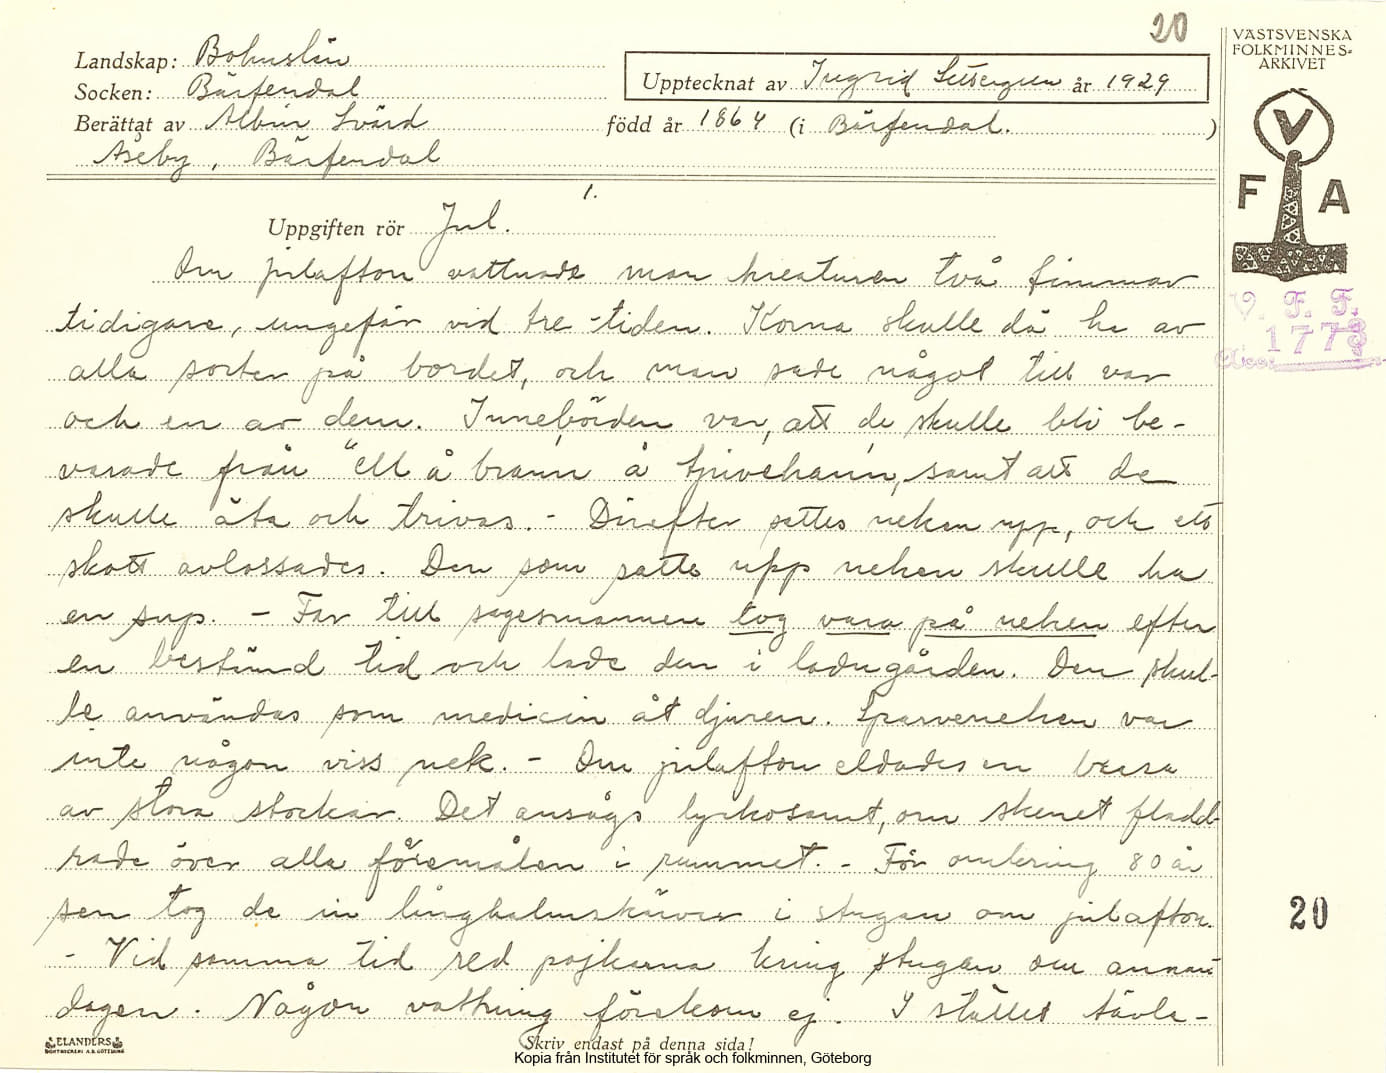 20
VÄSTSVENSKA
FOLKMINNES-
ARKIVET
Landskap: Bohuslän
Upptecknat av Ingrid år 1929
Socken: Bärfendal
Berättat av Albin Svärd född år 1864 (i Bärfendal. )
Aseby, Bärfendal
V
F A
1.
Uppgiften rör Jul.
V. F. F.
1773
Om julafton vattnade man kreaturen två timmar
tidigare, ungefär vid tre-tiden. Korna skulle då ha av
alla sorter på bordet, och man sade något till var
och en av dem. Innebörden var, att de skulle bli be-
varade från "ell å brann å tjuvehann, samt att de
skulle äta och trivas. - Därefter sattes neken upp, och ett
skott avlossades. Den som satte upp neken skulle ha
en sup. - Far till sagesmannen tog vara på neken efter
en bestämd tid och lade den i ladugården. Den skul-
le användas som medicin åt djuren. Sparveneken var
inte någon viss nek. - Om julafton eldades en brasa
av stora stockar. Det ansågs lyckosamt, om skenet fladd-
rade över alla föremålen i rummet. - För omkring 80 år
sen tog de in långhalmskärvar i stugan om julafton.
- Vid samma tid red pojkarna kring stugan om annan
dagen. Någon vattning förekom ej. I stället tävla-
20
ELANDERS
BOKTRYCKERI A.B. GÖTEBORG
Skriv endast på denna sida!
Kopia från Institutet för språk och folkminnen, Göteborg